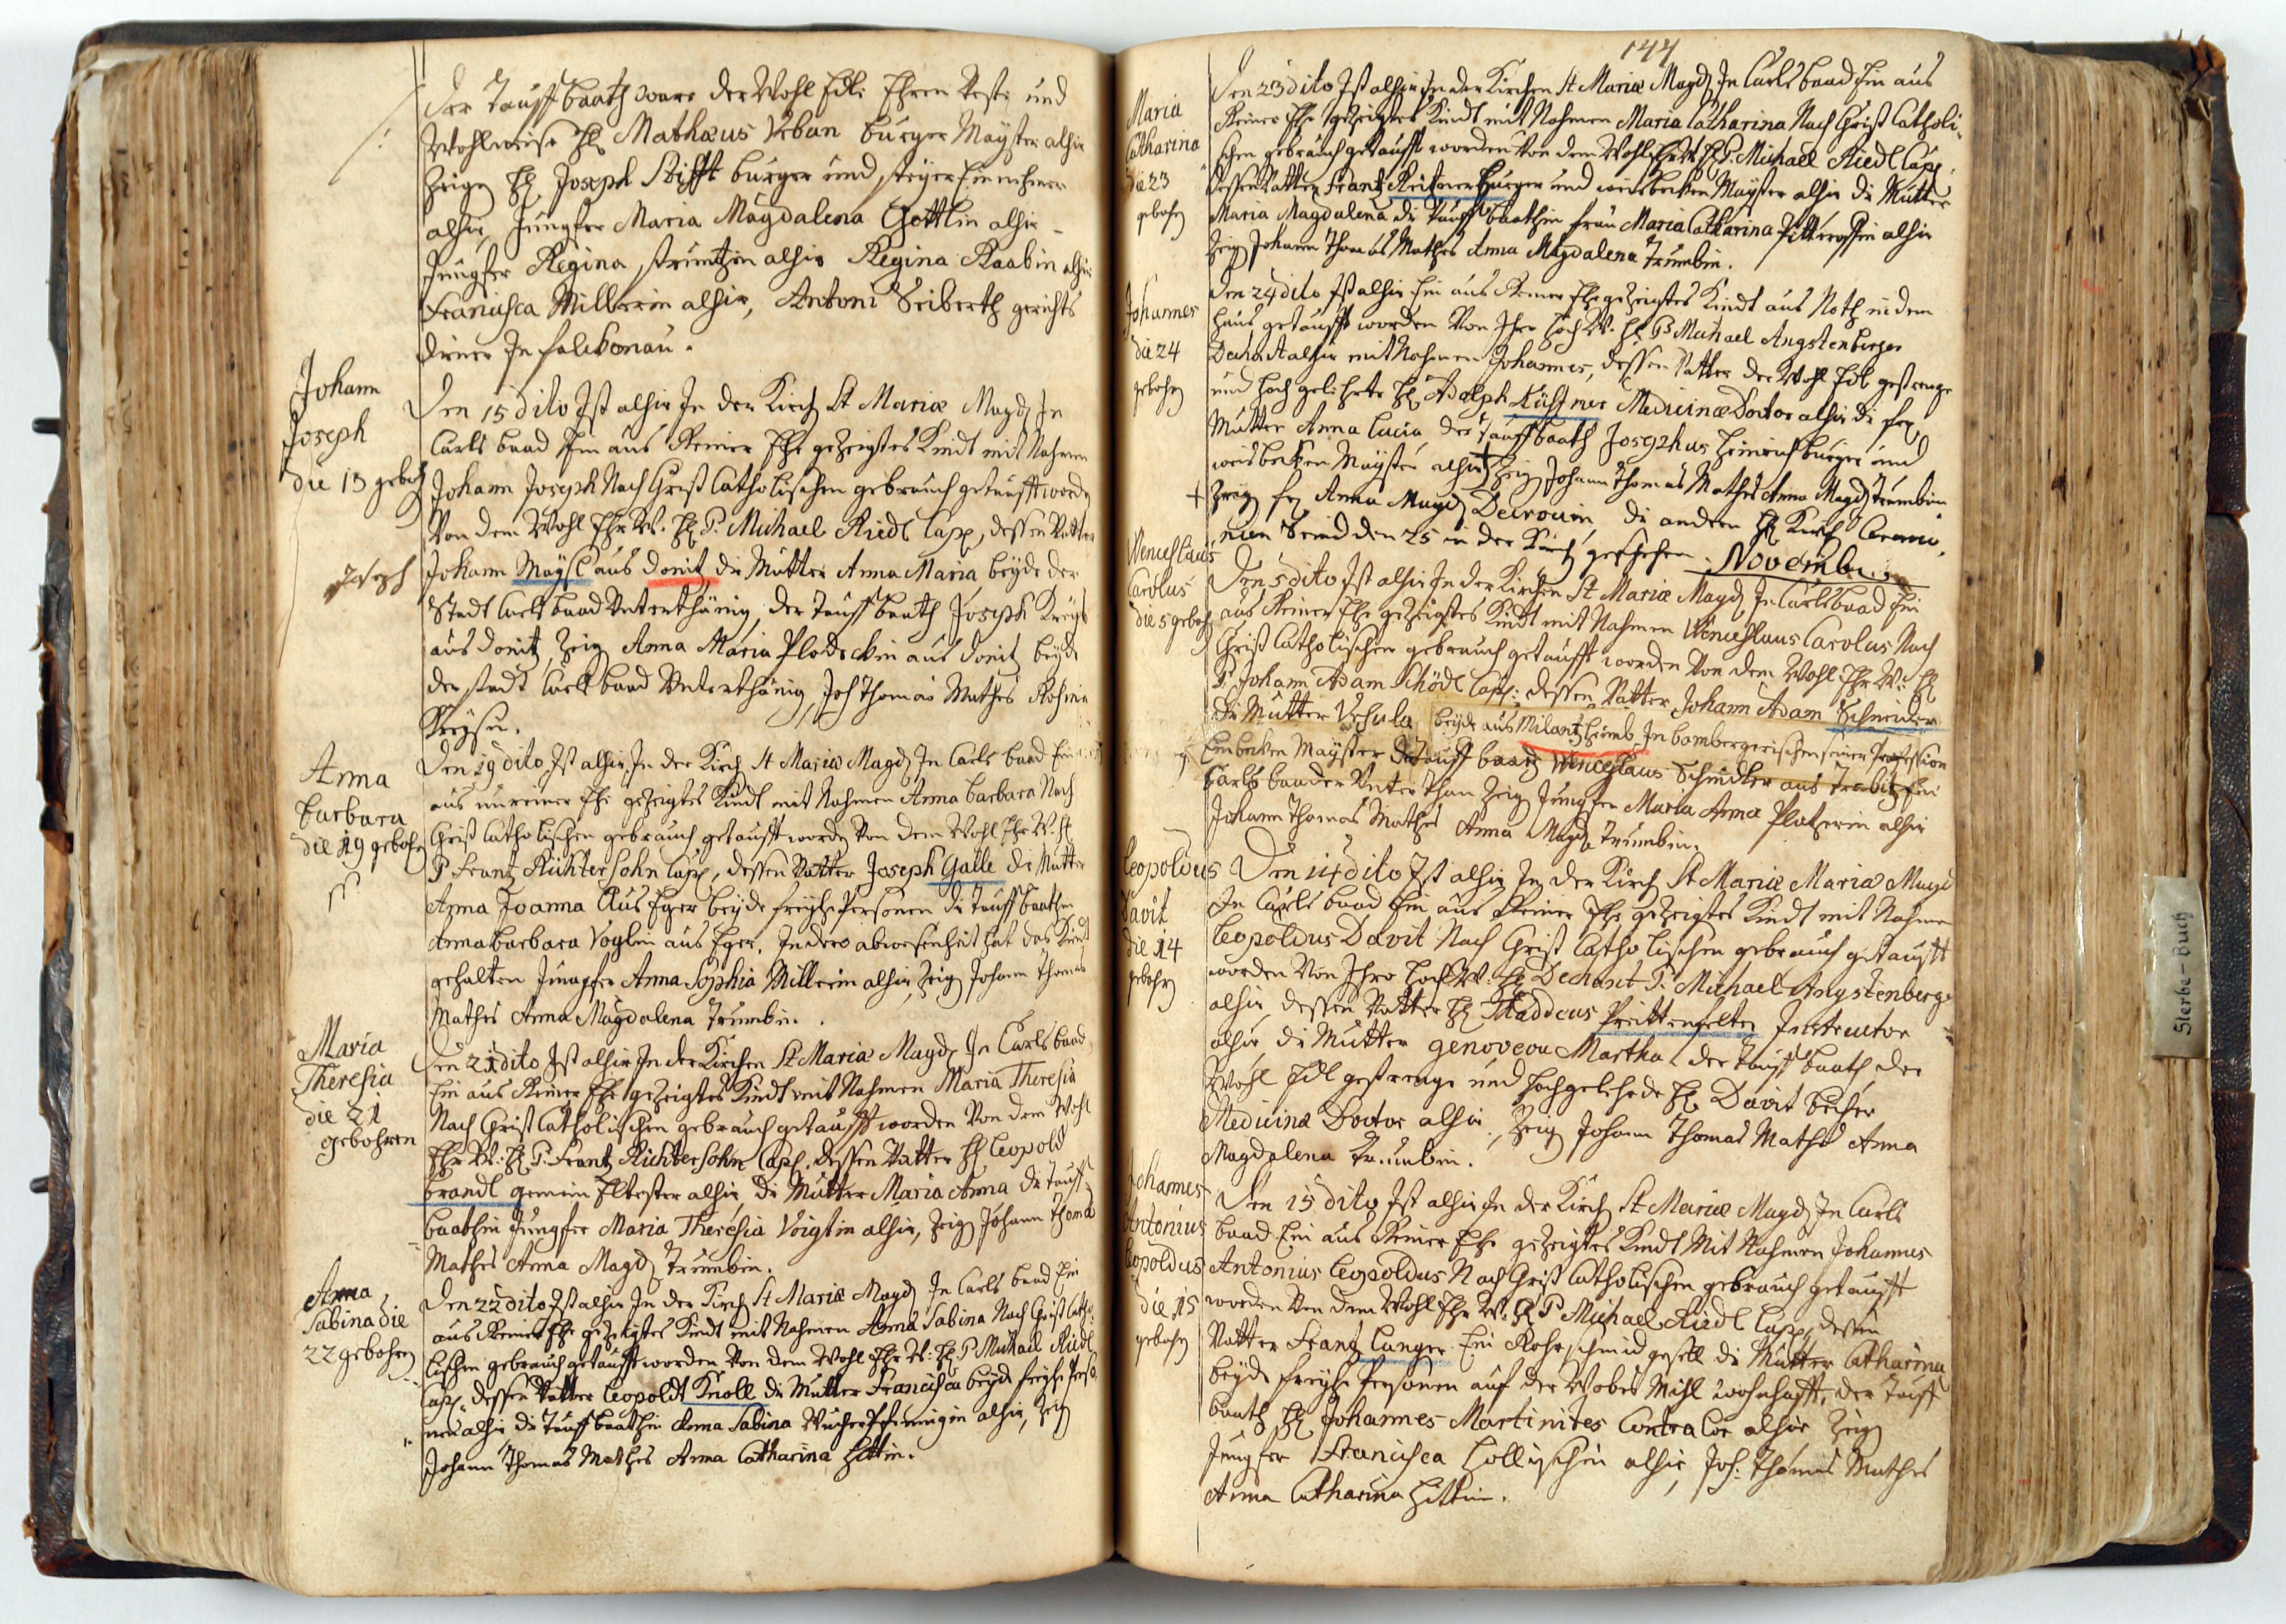 der Tauffbaath ware der Wohl Edle Ehren Veste und
Wohlweise H: Mathæus Urban burger Mayster alhir
Zeign H: Joseph Stifft burger und steyer Einnehmer
alhir, Jungfer Maria Magdalena Gottlin alhir
Jungfer Regina alhir Regina Raabin alhir
Francisca Millerin alhir, Antoni Seiberth gerichts
diener In falckonau.
Johann
Joseph
die 13 gebohrn
Joseph
Den 15 dito Ist alhir In der Kirch St Mariæ Magd: In
Carls baad Ein aus Reiner Ehe gezeigtes Kindt mit Nahmen
Johann Joseph Nach Christ Catholischen gebrauch getaufft worden
Von dem Wohl Ehr W. H: P. Michael Riedl Capp, dessen Vatter
Johann Maysl aus donitz die Mutter Anna Maria beyde der
Stadt Carlsbaad Unterthänig, der Tauffbaath Joseph
aus donitz, Zeign Anna Maria aus donitz beyde
der stadt Carlsbaad Unterthänig, Joh Thomas Mathes Rosina
Anna
barbara
die 19 gebohrn
Den 19 dito Ist alhir In der Kirch St Mariæ Magd: In Carls baad Ein
aus unreiner Ehe gezeigtes Kindt mit Nahmen Anna barbara Nach
Christ Catholischen gebrauch getaufft worden Von dem Wohl Ehr W. H:
P Frantz Richtersohn Capp, dessen Vatter Joseph Galle die Mutter
Anna Joanna Aus Eger beyde freyhe Personen die Tauffbaathin
Anna barbara Voglin aus Eger. In dero abwesenheit hat das Kindt
gehalten Jungfer Anna Sophia Millerin alhir, Zeign Johann Thomas
Mathes Anna Magdalena Trumbin.
Maria
Theresia
die 21
gebohren
Den 21 dito Ist alhir In der Kirchen St Mariæ Magd: In Carlsbaad
Ein aus Reiner Ehe gezeigtes Kindt mit Nahmen Maria Theresia
Nach Christ Catholischen gebrauch getaufft worden Von dem Wohl
Ehr W: H: P. Frantz Richtersohn Capp. dessen Vatter H: Leopold
brandl gemein Eltester alhir, die Mutter Maria Anna die Tauff
baathin Jungfer Maria Theresia Voigtin alhir, Zeign Johann Thomas
Mathes Anna Magd: Trumbin.
Anna
Sabina die
22 gebohrn
Den 22 dito Ist alhir In der Kirch St Mariæ Magd: In Carls baad Ein
aus Reiner Ehe gezeigtes Kindt mit Nahmen Anna Sabina Nach Christ Catho
lischen gebrauch getaufft worden Von dem Wohl Ehr W: H: P Michael Riedl
Capp. dessen Vatter Leopoldt Knoll die Mutter Francisca beyde freyhe Perso
nen alhir die Tauffbaathin Anna Sabina alhir, Zeign
Johann Thomas Mathes Anna Catharina Hittin.
144
Maria
Catharina
die 23
gebohrn
Den 23 dito Ist alhir In der Kirchen St Mariæ Magd: In Carlsbaad Ein aus
Reiner Ehe gezeigtes Kindt mit Nahmen Maria Catharina Nach Christ Catholi
schen gebrauch getaufft worden Von dem Wohl Ehr W: H: P. Michael Riedl Capp.
dessen Vatter Frantz burger und weisbecken Mayster alhir die Mutter
Maria Magdalena die Tauffbaathin frau Maria Catharina alhir
Zeign Johann Thomas Mathes Anna Magdalena Trumbin.
Johannes
die 24
gebohrn
Den 24 dito Ist alhir Ein aus Reiner Ehe gezeigtes Kindt aus Noth in dem
haus getaufft worden Von Ihro Hoch W. H: P: Michael Angstenberger
Dechant alhir mit Nahmen Johannes, dessen Vatter der Wohl Edl gestrenge
und hochgelehrte H: Adolph Medicinæ Doctor alhir die fr:
Mutter Anna Lucia, der Tauffbaath Josephus Heinrich burger und
weisbecken Mayster alhir + Zeign Johann Thomas Mathes Anna Magd: Trumbin
+ Zeign fr: Anna Magd: die andern H: Kirch Ceremo
nien Seind den 25 in der Kirch geschehen. November
Wenceslaus
Carolus
die 5 gebohrn
Den 5 dito Ist alhir In der Kirchen St Mariæ Magd: In Carlsbaad Ein
aus Reiner Ehe gezeigtes Kindt mit Nahmen Wenceslaus Carolus Nach
Christ Catholischen gebrauch getaufft worden Von dem Wohl Ehr W: H:
P. Johann Adam Schödl Capp: dessen Vatter Johann Adam Schneider
die Mutter Ursula beyde aus In bambergerischen seiner Profession
Ein becken Mayster der Tauffbaath Wenceslaus Schindler aus Ein
Carlsbaader Unterthan Zeign Jungfer Maria Anna Platzerin alhir
Johann Thomas Mathes Anna Magd: Trumbin.
Leopoldus
Davit
die 14
gebohrn
Den 14 dito Ist alhir In der Kirch St Mariæ Mariæ Magd
In Carls baad Ein aus Reiner Ehe gezeigtes Kindt mit Nahmen
Leopoldus Davit Nach Christ Catholischen gebrauch getaufft
worden Von Ihro Hoch W: H: Dechant P. Michael Angstenberger
alhir, dessen Vatter H: Thaddeus Instructor
alhir die Mutter Genoveva Martha der Tauffbaath der
Wohl Edl gestrenge und hochgelehrte H: Davit becher
Medicinæ Doctor alhir, Zeign Johann Thomas Mathes Anna
Magdalena Trumbin.
Johannes
Antonius
Leopoldus
die 15
gebohrn
Den 15 dito Ist alhir In der Kirch St Mariæ Magd: In Carls
baad Ein aus Reiner Ehe gezeigtes Kindt Mit Nahmen Johannes
Antonius Leopoldus Nach Christ Catholischen gebrauch getaufft
worden Von dem Wohl Ehr W: H: P Michael Riedl Capp, dessen
Vatter Frantz Langer Ein Rohrschmid gesell die Mutter Catharina
beyde freyhe Personen auf der Mihl wohnhafft, der Tauff
baath H: Johannes Martinites Contralor alhir Zeign
Jungfer Francisca alhir, Joh: Thomas Mathes
Anna Catharina Hittin.
Sterbe-Buch